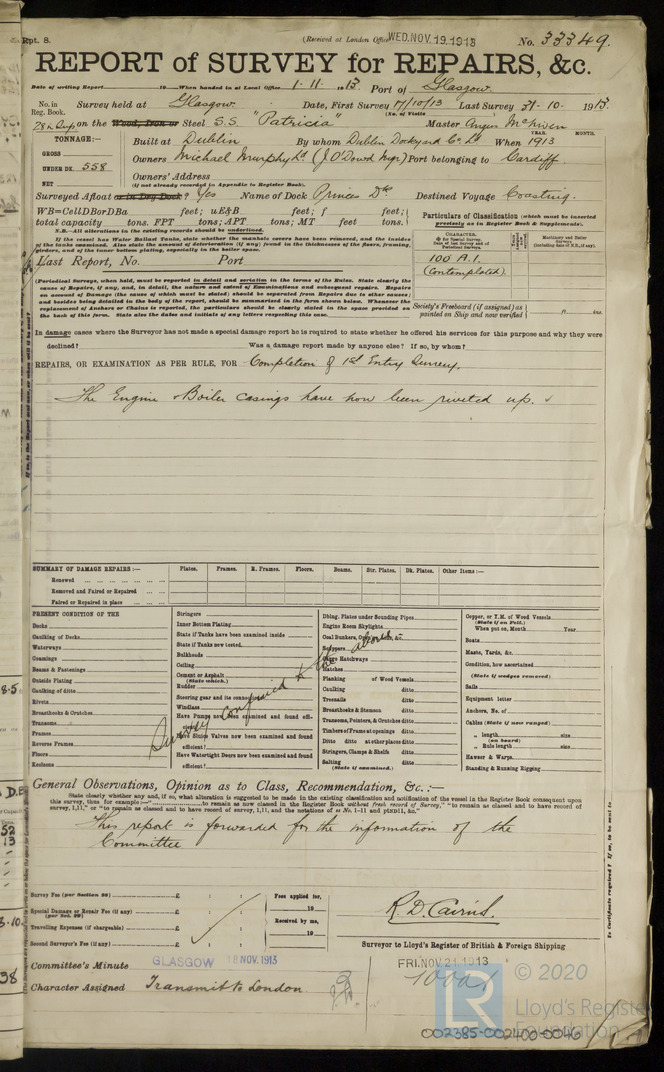 Rpt. 8.
(Received at London Office WED. NOV. 19. 1913
No. 33349.
REPORT of SURVEY for REPAIRS, &c.
Date of writing Report 19 When handed in at Local Office 1. 11. 1913. Port of Glasgow.
No. in Reg. Book. Survey held at Glasgow. Date, First Survey 17/10/13 Last Survey 31. 10. 1913.
(No. of Visits
on the Wood, Iron or Steel S.S. "Patricia" Master Angus McNiven
TONNAGE:— Built at Dublin By whom Dublin Dockyard Co. Ld. When 1913
YEAR. MONTH.
GROSS
UNDER DK. 558
NET
Owners Michael Murphy Ld (J. O'Dowd Mgr) Port belonging to Cardiff.
Owners' Address
(if not already recorded in Appendix to Register Book).
Surveyed Afloat or in Dry Dock? Yes Name of Dock Princes Dk Destined Voyage Coasting.
WB=CellDBorDBa feet; uE&B feet; f feet;
total capacity tons. FPT tons; APT tons; MT feet tons.
N.B.—All alterations in the existing records should be underlined.
Particulars of Classification (which must be inserted precisely as in Register Book & Supplements).
Last Report, No. Port
100 A.1.
(Contemplated).
Society's Freeboard (if assigned) as painted on Ship and now verified ft. ins.
(Periodical Surveys, when held, must be reported in detail and seriatim in the terms of the Rules. State clearly the causes of Repairs, if any, and, in detail, the nature and extent of Examinations and subsequent repairs. Repairs on account of Damage (the cause of which must be stated) should be separated from Repairs due to other causes; and besides being detailed in the body of the report, should be summarised in the form shown below. Whenever the replacement of Anchors or Chains is reported, the particulars should be clearly stated in the space provided on the back of this form. State also the dates and initials of any letters respecting this case.
In damage cases where the Surveyor has not made a special damage report he is required to state whether he offered his services for this purpose and why they were
declined? Was a damage report made by anyone else? If so, by whom?
REPAIRS, OR EXAMINATION AS PER RULE, FOR Completion of 1st Entry Survey.
The Engine & Boiler casings have now been riveted up.
SUMMARY OF DAMAGE REPAIRS:— Plates. Frames. R. Frames. Floors. Beams. Str. Plates. Dk. Plates. Other Items:—
Renewed
Removed and Faired or Repaired
Faired or Repaired in place
PRESENT CONDITION OF THE
Decks
Caulking of Decks
Waterways
Coamings
Beams & Fastenings
Outside Plating
Caulking of ditto
Rivets
Breasthooks & Crutches
Transoms
Frames
Reverse Frames
Floors
Keelsons
Stringers
Inner Bottom Plating
State if Tanks have been examined inside
State if Tanks now tested.
Bulkheads
Ceiling
Cement or Asphalt
(State which.)
Rudder
Steering gear and its connections
Windlass
Have Pumps now been examined and found efficient?
Have Sluice Valves now been examined and found efficient?
Have Watertight Doors now been examined and found efficient?
Survey confined to the above
Dblng. Plates under Sounding Pipes
Engine Room Skylights
Coal Bunkers, Openings, &c.
Scuppers
Cargo Hatchways
Hatches
Planking of Wood Vessels
Caulking ditto
Treenails ditto
Breasthooks & Stemson ditto
Transoms, Pointers, & Crutches ditto
Timbers of Frame at openings ditto
Ditto ditto at other places ditto
Stringers, Clamps & Shelfs ditto
Salting ditto
(State if examined.)
Copper, or Y.M. of Wood Vessels
(State if on Felt.)
When put on, Month Year
Boats
Masts, Yards, &c.
Condition, how ascertained
(State if wedges removed)
Sails
Equipment letter
Anchors, No. of
Cables (State if now ranged)
" length size
(on board)
" Rule length size
Hawser & Warps
Standing & Running Rigging
General Observations, Opinion as to Class, Recommendation, &c. :—
State clearly whether any and, if so, what alteration is suggested to be made in the existing classification and notification of the vessel in the Register Book consequent upon
This report is forwarded for the information of the
Committee
Survey Fee (per Section 29) £ : :
Special Damage or Repair Fee (if any) £ : :
(per Sec. 29)
Travelling Expenses (if chargeable) £ : :
Second Surveyor's Fee (if any) £ : :
Fees applied for,
19
Received by me,
19
R. D. Cairns.
Surveyor to Lloyd's Register of British & Foreign Shipping
Committee's Minute GLASGOW 18 NOV. 1913
FRI. NOV. 21. 1913
Character Assigned Transmit to London
100A1
LR
© 2020
Lloyd's Register
Foundation
002385-002400-0046